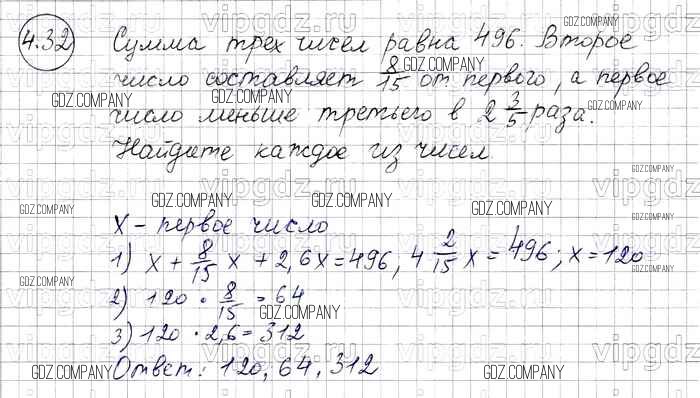 4.32 Сумма трех чисел равна 496. Второе
число составляет 8/15 от первого, а первое
число меньше третьего в 2 3/5 раза.
Найдите каждое из чисел
x - первое число
1) x + 8/15 x + 2,6x = 496, 4 2/15 x = 496; x = 120
2) 120 · 8/15 = 64
3) 120 · 2,6 = 312
Ответ: 120, 64, 312